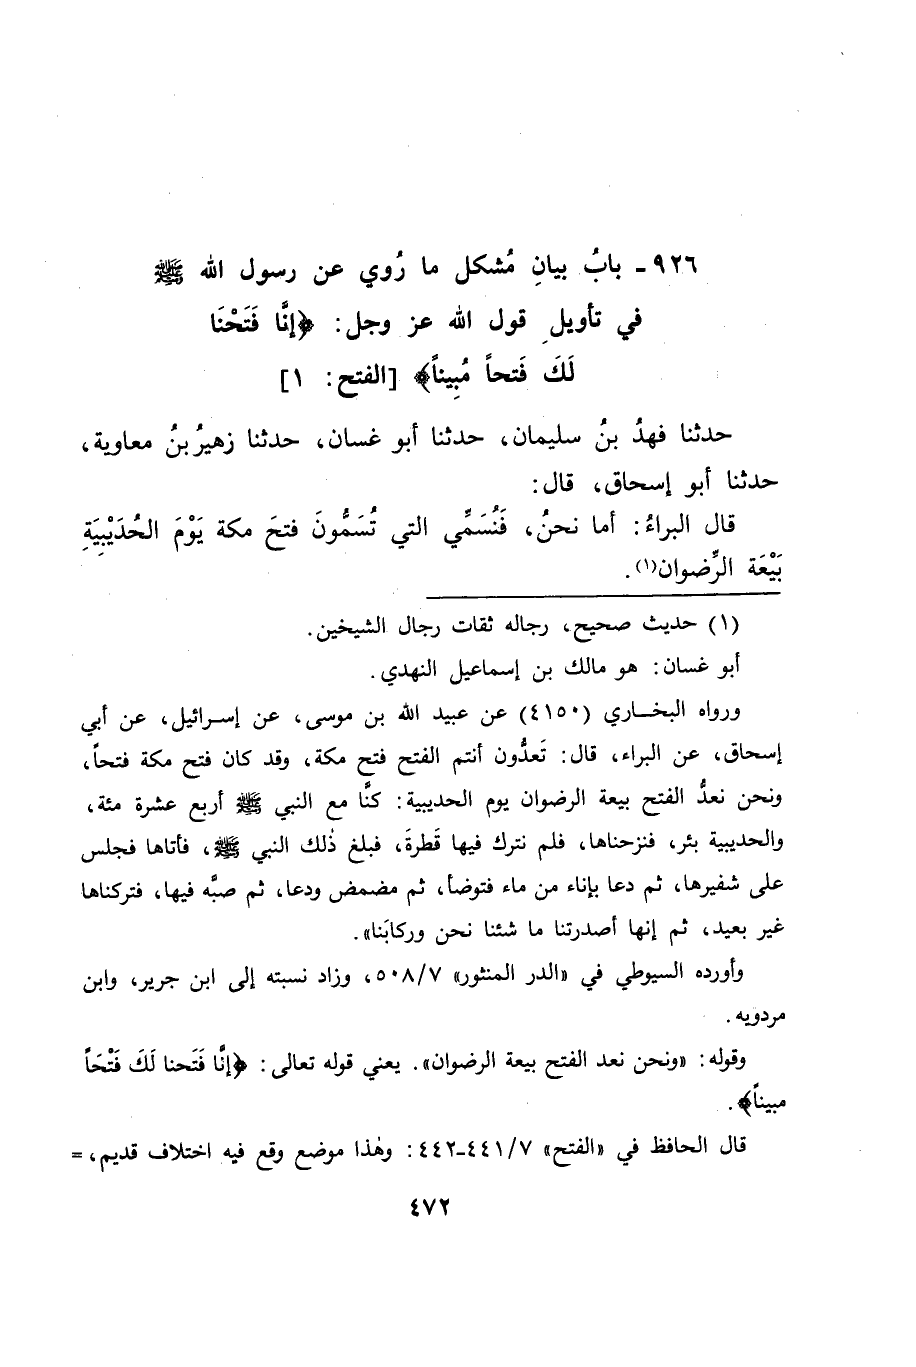 ٩٢٦ - بابُ بيانِ مُشكل ما رُوي عن رسول الله ﷺ
في تأويلِ قول الله عز وجل: ﴿إنَّا فَتَحْنَا
لَكَ فَتحاً مُبِيناً﴾ [الفتح: ١]
حدثنا فهدُ بنُ سليمان، حدثنا أبو غسان، حدثنا زهيرُ بنُ معاوية،
حدثنا أبو إسحاق، قال:
قال البراءُ: أما نحنُ، فَنُسَمِّي التي تُسَمُّونَ فتحَ مكة يَوْمَ الحُدَيْبِيَةِ
بَيْعَة الرِّضوان(١).
(١) حديث صحيح، رجاله ثقات رجال الشيخين.
أبو غسان: هو مالك بن إسماعيل النهدي.
ورواه البخاري (٤١٥٠) عن عبيد الله بن موسى، عن إسرائيل، عن أبي
إسحاق، عن البراء، قال: تَعدُّون أنتم الفتح فتح مكة، وقد كان فتح مكة فتحاً،
ونحن نعدُّ الفتح بيعة الرضوان يوم الحديبية: كنَّا مع النبي ﷺ أربع عشرة مئة،
والحديبية بئر، فنزحناها، فلم نترك فيها قَطرةً، فبلغ ذٰلك النبي ﷺ، فأتاها فجلس
على شفيرها، ثم دعا بإناء من ماء فتوضأ، ثم مضمض ودعا، ثم صبَّه فيها، فتركناها
غير بعيد، ثم إنها أصدرتنا ما شئنا نحن وركابَنا».
وأورده السيوطي في «الدر المنثور» ٥٠٨/٧، وزاد نسبته إلى ابن جرير، وابن
مردويه.
وقوله: «ونحن نعد الفتح بيعة الرضوان». يعني قوله تعالى: ﴿إنَّا فَتَحنا لَكَ فَتْحَاً
مبيناً﴾.
قال الحافظ في «الفتح» ٤٤١/٧-٤٤٢: وهٰذا موضع وقع فيه اختلاف قديم، =
٤٧٢